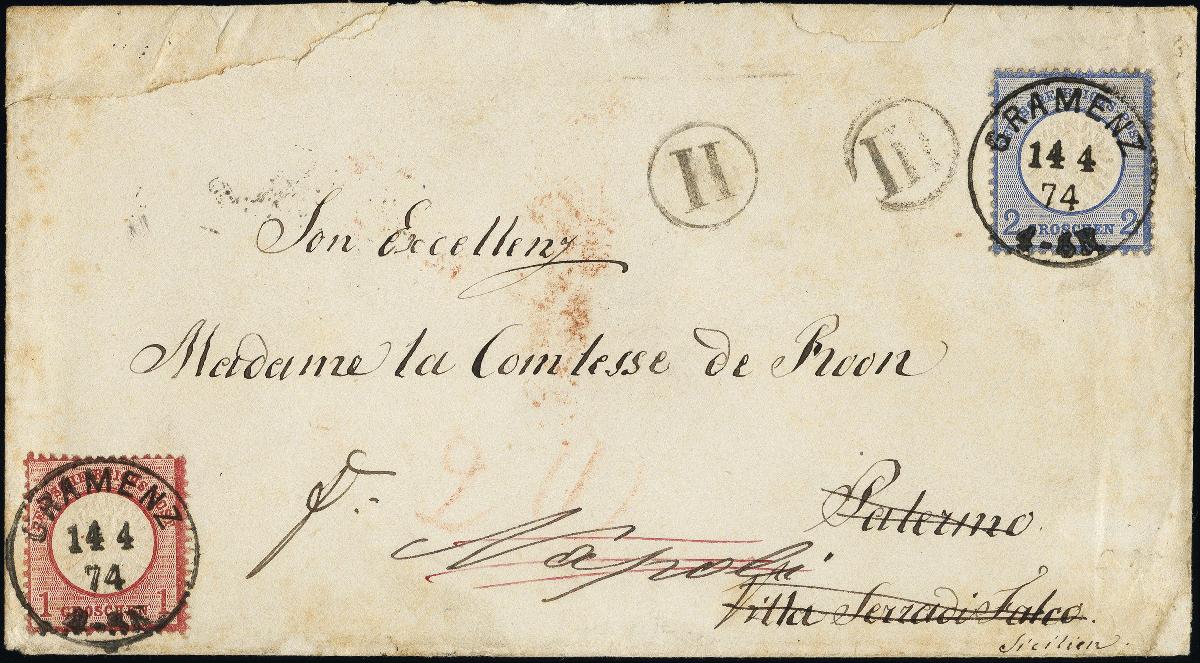 GRAMENZ
14 4
74
2 GROSCHEN 2
II
III
Son Excellenz
Madame la Comtesse de Roon
p.
Palermo
Napoli
Villa Serradifalco
Sicilien.
GRAMENZ
14 4
74
1 GROSCHEN 1